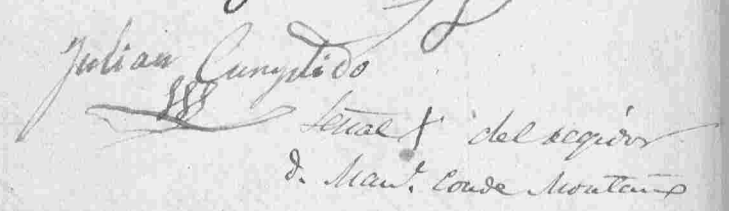 Julian Cumplido
Señal + del regidor
D. Man.l Conde Montañes